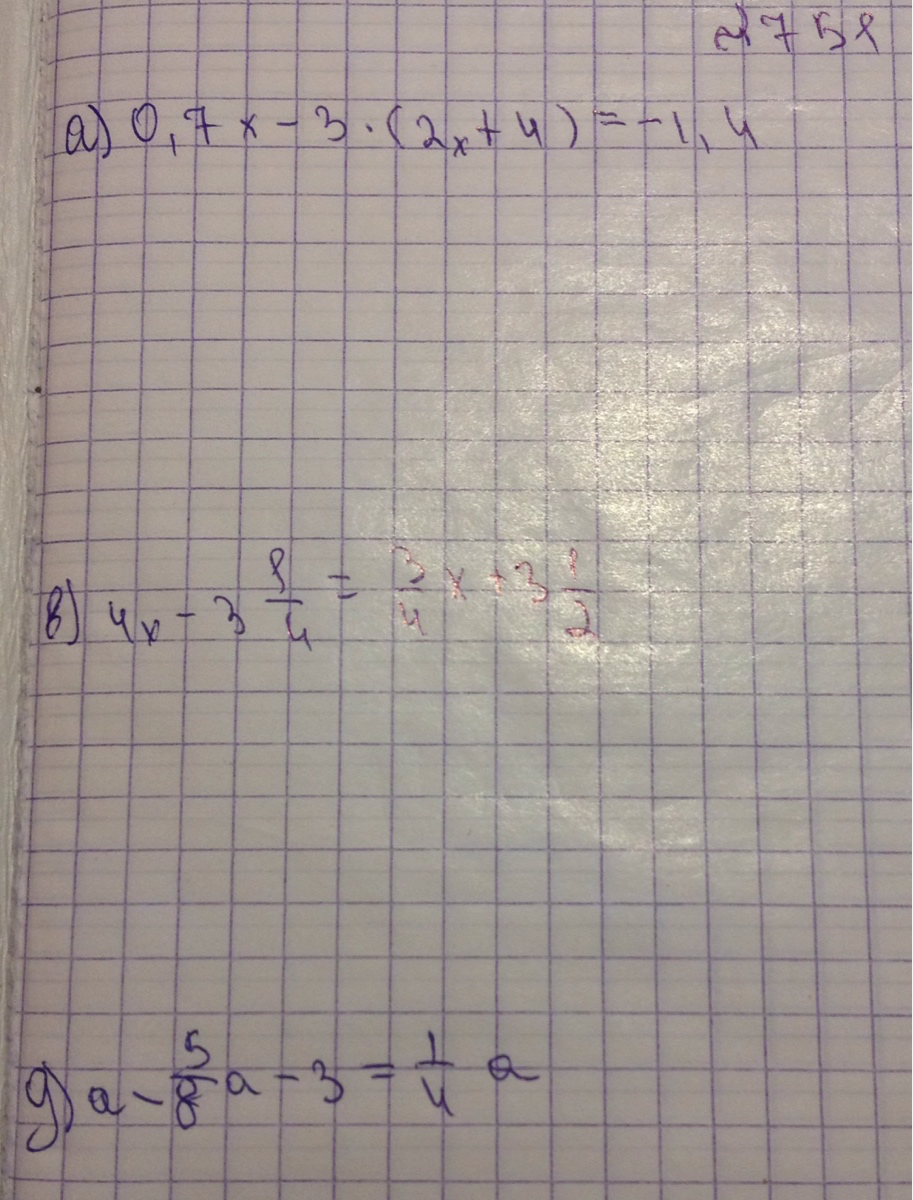 № 758
а) 0,7x - 3 · (2x + 4) = -1,4
в) 4x - 3 1/4 = 3/4 x + 3 1/2
д) a - 5/8 a - 3 = 1/4 a